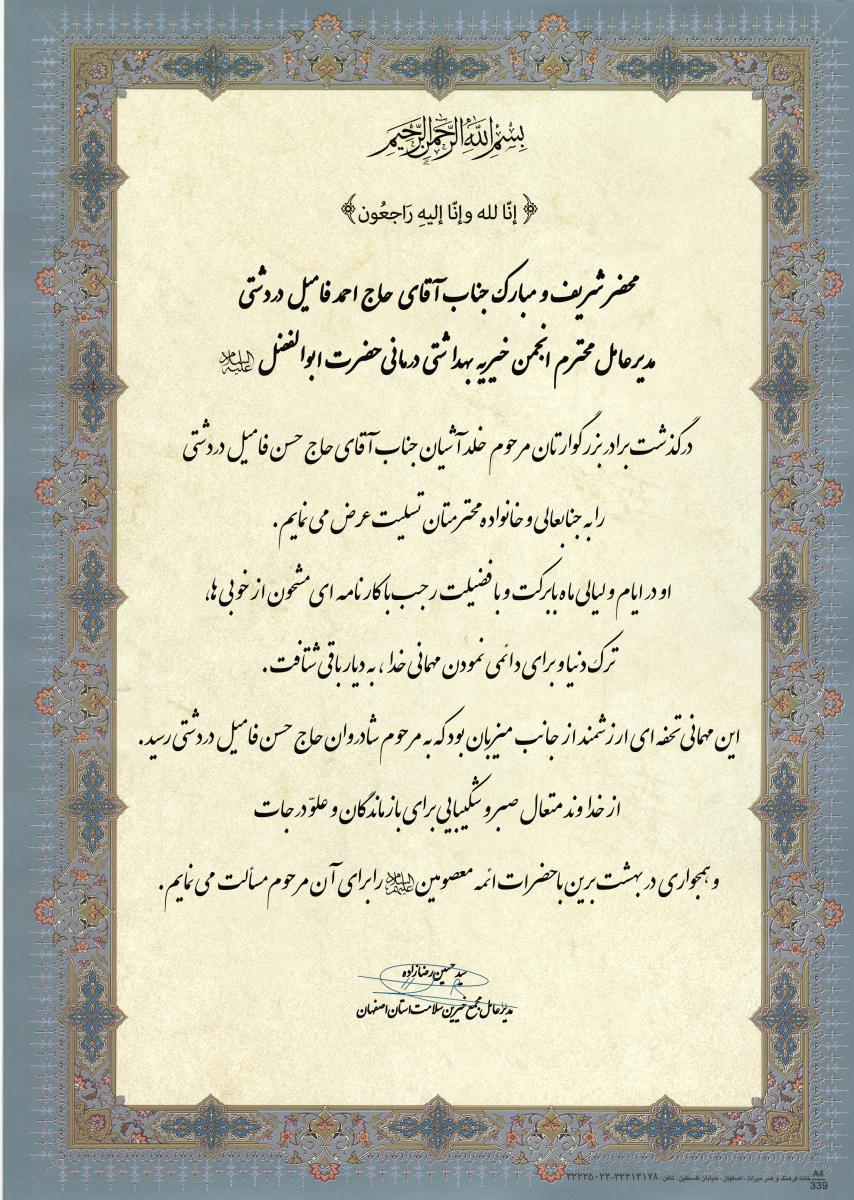 بسم الله الرحمن الرحیم
﴿ إنّا لله وإنّا إلیهِ رَاجعُون ﴾
محضر شریف و مبارک جناب آقای حاج احمد فامیل دردشتی
مدیرعامل محترم انجمن خیریه بهداشتی درمانی حضرت ابوالفضل علیه‌السلام
درگذشت برادر بزرگوارتان مرحوم خلد آشیان جناب آقای حاج حسن فامیل دردشتی
را به جنابعالی و خانواده محترمتان تسلیت عرض می نمایم.
او در ایام و لیالی ماه بابرکت و با فضیلت رجب با کارنامه ای مشحون از خوبی ها،
ترک دنیا و برای دائمی نمودن مهمانی خدا ، به دیار باقی شتافت.
این مهمانی تحفه ای ارزشمند از جانب میزبان بود که به مرحوم شادروان حاج حسن فامیل دردشتی رسید.
از خداوند متعال صبر و شکیبایی برای بازماندگان و علوّ درجات
و همجواری در بهشت برین با حضرات ائمه معصومین علیهم‌السلام را برای آن مرحوم مسألت می نمایم.
سید حسین رضازاده
مدیرعامل مجمع خیرین سلامت استان اصفهان
خانه فرهنگ و هنر میراث ، اصفهان ، خیابان فلسطین ، تلفن : ۳۲۲۱۳۱۷۸-۳۲۲۲۵۰۲۲
A4
339